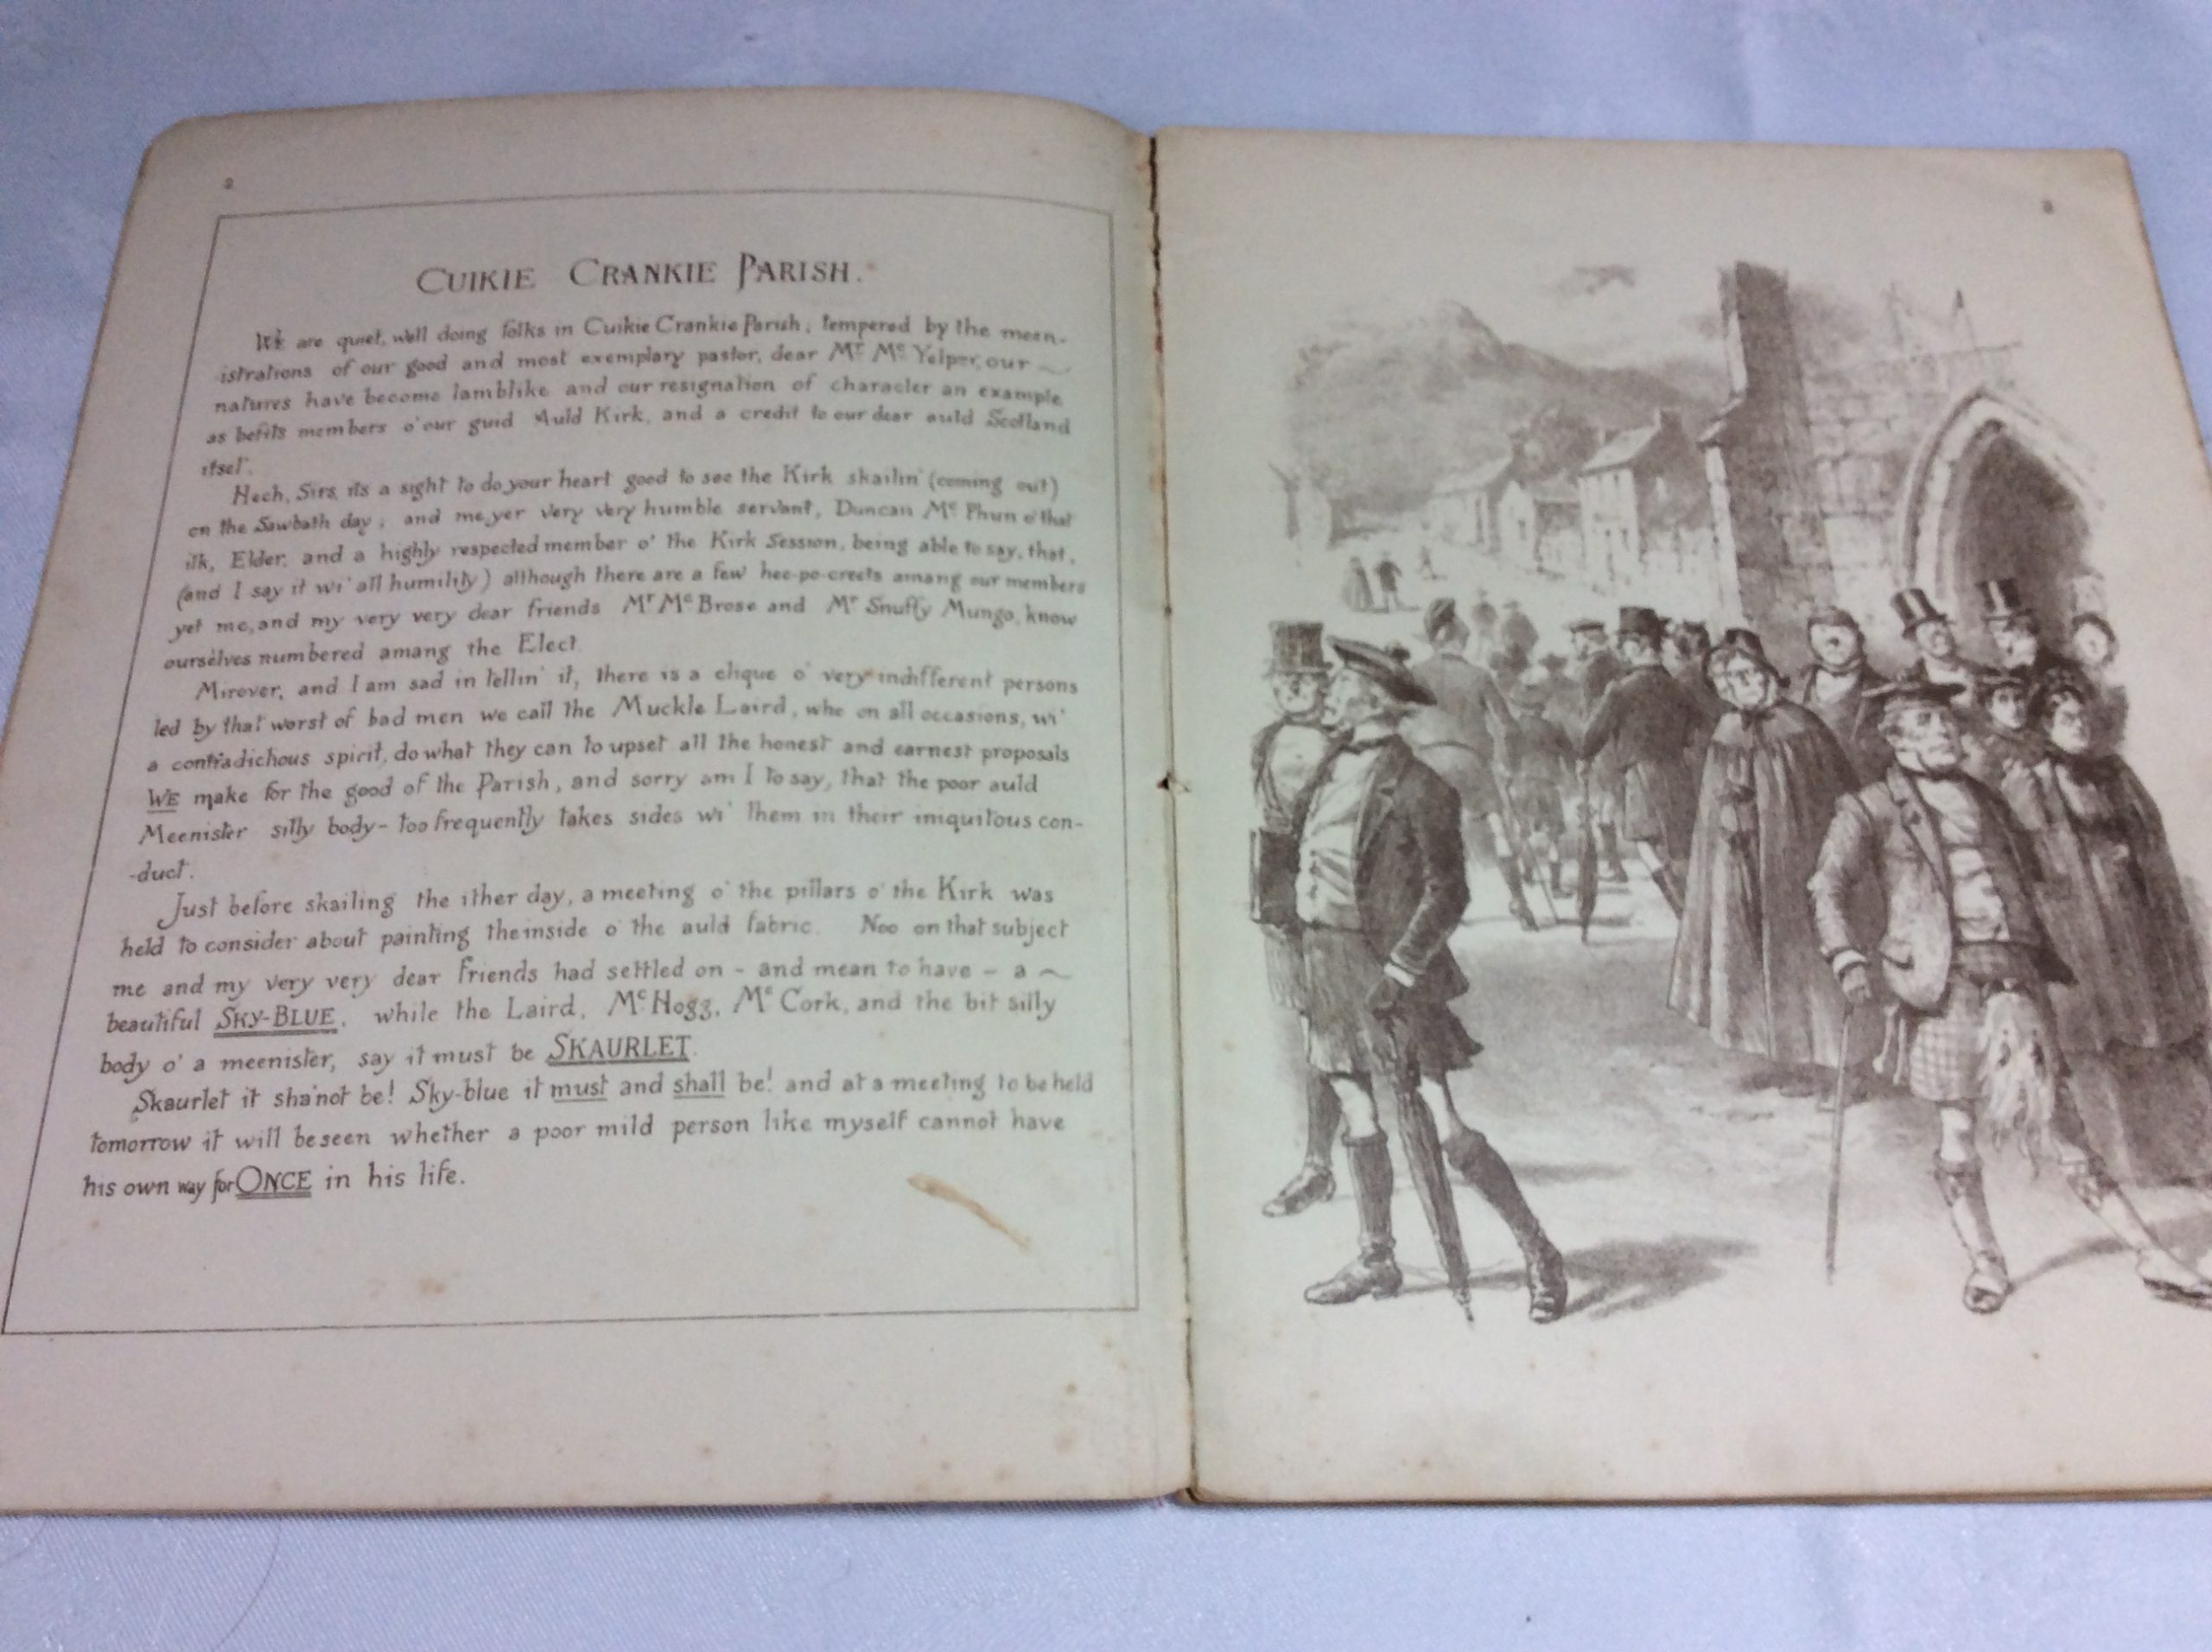 2
CUIKIE CRANKIE PARISH.
We are quiet, well doing folks in Cuikie Crankie Parish, tempered by the meen-
istrations of our good and most exemplary pastor, dear Mr Mc Yelper, our
natures have become lamblike and our resignation of character an example
as befits members o' our guid Auld Kirk, and a credit to our dear auld Scotland
itsel'.
Hech, Sirs, its a sight to do your heart good to see the Kirk skailin' (coming out)
on the Sawbath day; and me, yer very very humble servant, Duncan Mc Phun o' that
ilk, Elder, and a highly respected member o' the Kirk Session, being able to say, that,
(and I say it wi' all humility) although there are a few hee-po-creets amang our members
yet me, and my very very dear friends Mr Mc Brose and Mr Snuffy Mungo, know
ourselves numbered amang the Elect.
Mirover, and I am sad in tellin' it, there is a clique o' very indifferent persons
led by that worst of bad men we call the Muckle Laird, who on all occasions, wi'
a contradichous spirit, do what they can to upset all the honest and earnest proposals
WE make for the good of the Parish, and sorry am I to say, that the poor auld
Meenister silly body - too frequently takes sides wi' them in their iniquitous con-
-duct.
Just before skailing the ither day, a meeting o' the pillars o' the Kirk was
held to consider about painting the inside o' the auld fabric. Noo on that subject
me and my very very dear friends had settled on - and mean to have - a
beautiful SKY-BLUE, while the Laird, Mc Hogg, Mc Cork, and the bit silly
body o' a meenister, say it must be SKAURLET.
Skaurlet it sha'not be! Sky-blue it must and shall be! and at a meeting to be held
tomorrow it will be seen whether a poor mild person like myself cannot have
his own way for ONCE in his life.
3